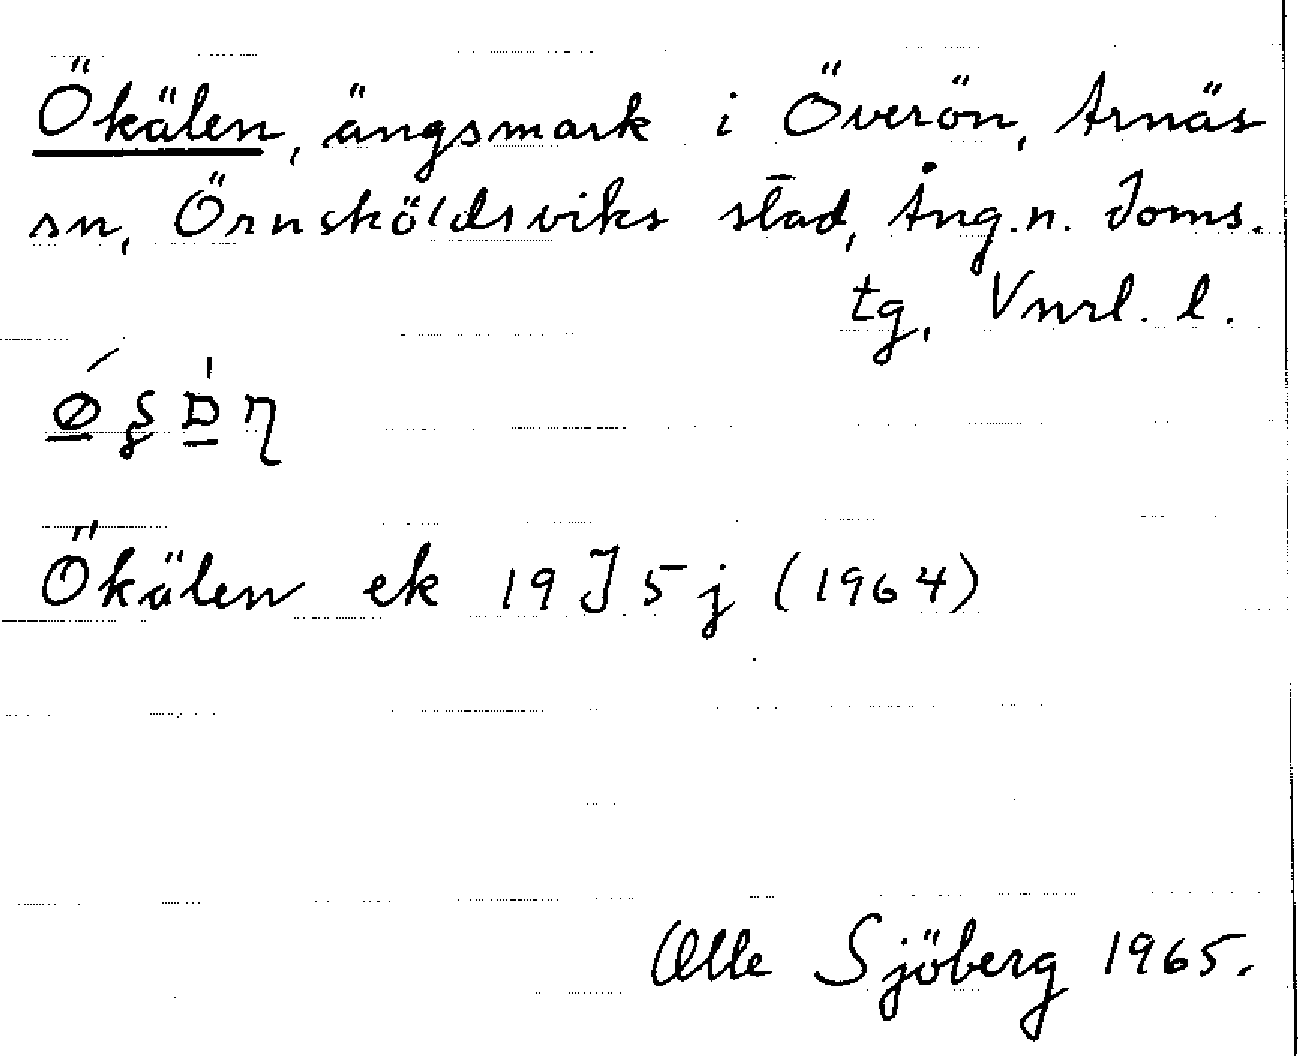 Ökälen, ängsmark i Överön, Arnäs
sn, Örnsköldsviks stad, Ång.n. doms.
tg, Vnrl. l.
Ökälen ek 19J5j (1964)
Olle Sjöberg 1965.